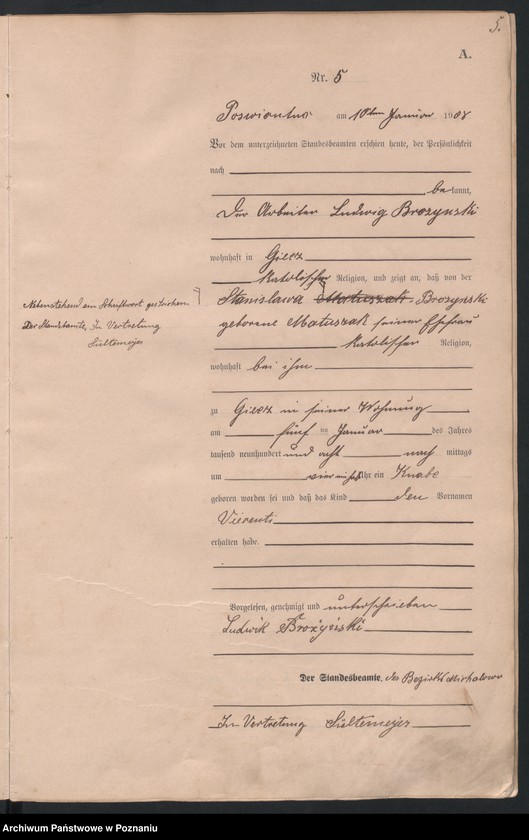 5.
A.
Nr. 5
am 10ten Januar 1908
Vor dem unterzeichneten Standesbeamten erschien heute, der Persönlichkeit
nach
be kannt,
Der Arbeiter Ludwig Brozynski
wohnhaft in Giecz
katolischer Religion, und zeigt an, daß von der
Stanislawa Matuszak Brozynski
geborene Matuszak seiner Ehefrau
katolischer Religion,
wohnhaft bei ihm
zu Giecz in seiner Wohnung
am fünf ten Januar des Jahres
tausend neunhundert und acht nach mittags
um vier einhalb Uhr ein Knabe
geboren worden sei und daß das Kind den Vornamen
erhalten habe.
Vorgelesen, genehmigt und unterschrieben
Ludwik Brożyński
Der Standesbeamte, des Bezirks
In Vertretung Sültemeyer
Nebenstehend ein Schriftwort gestrichen
Der Standesbeamte, In Vertretung
Sültemeyer
Archiwum Państwowe w Poznaniu